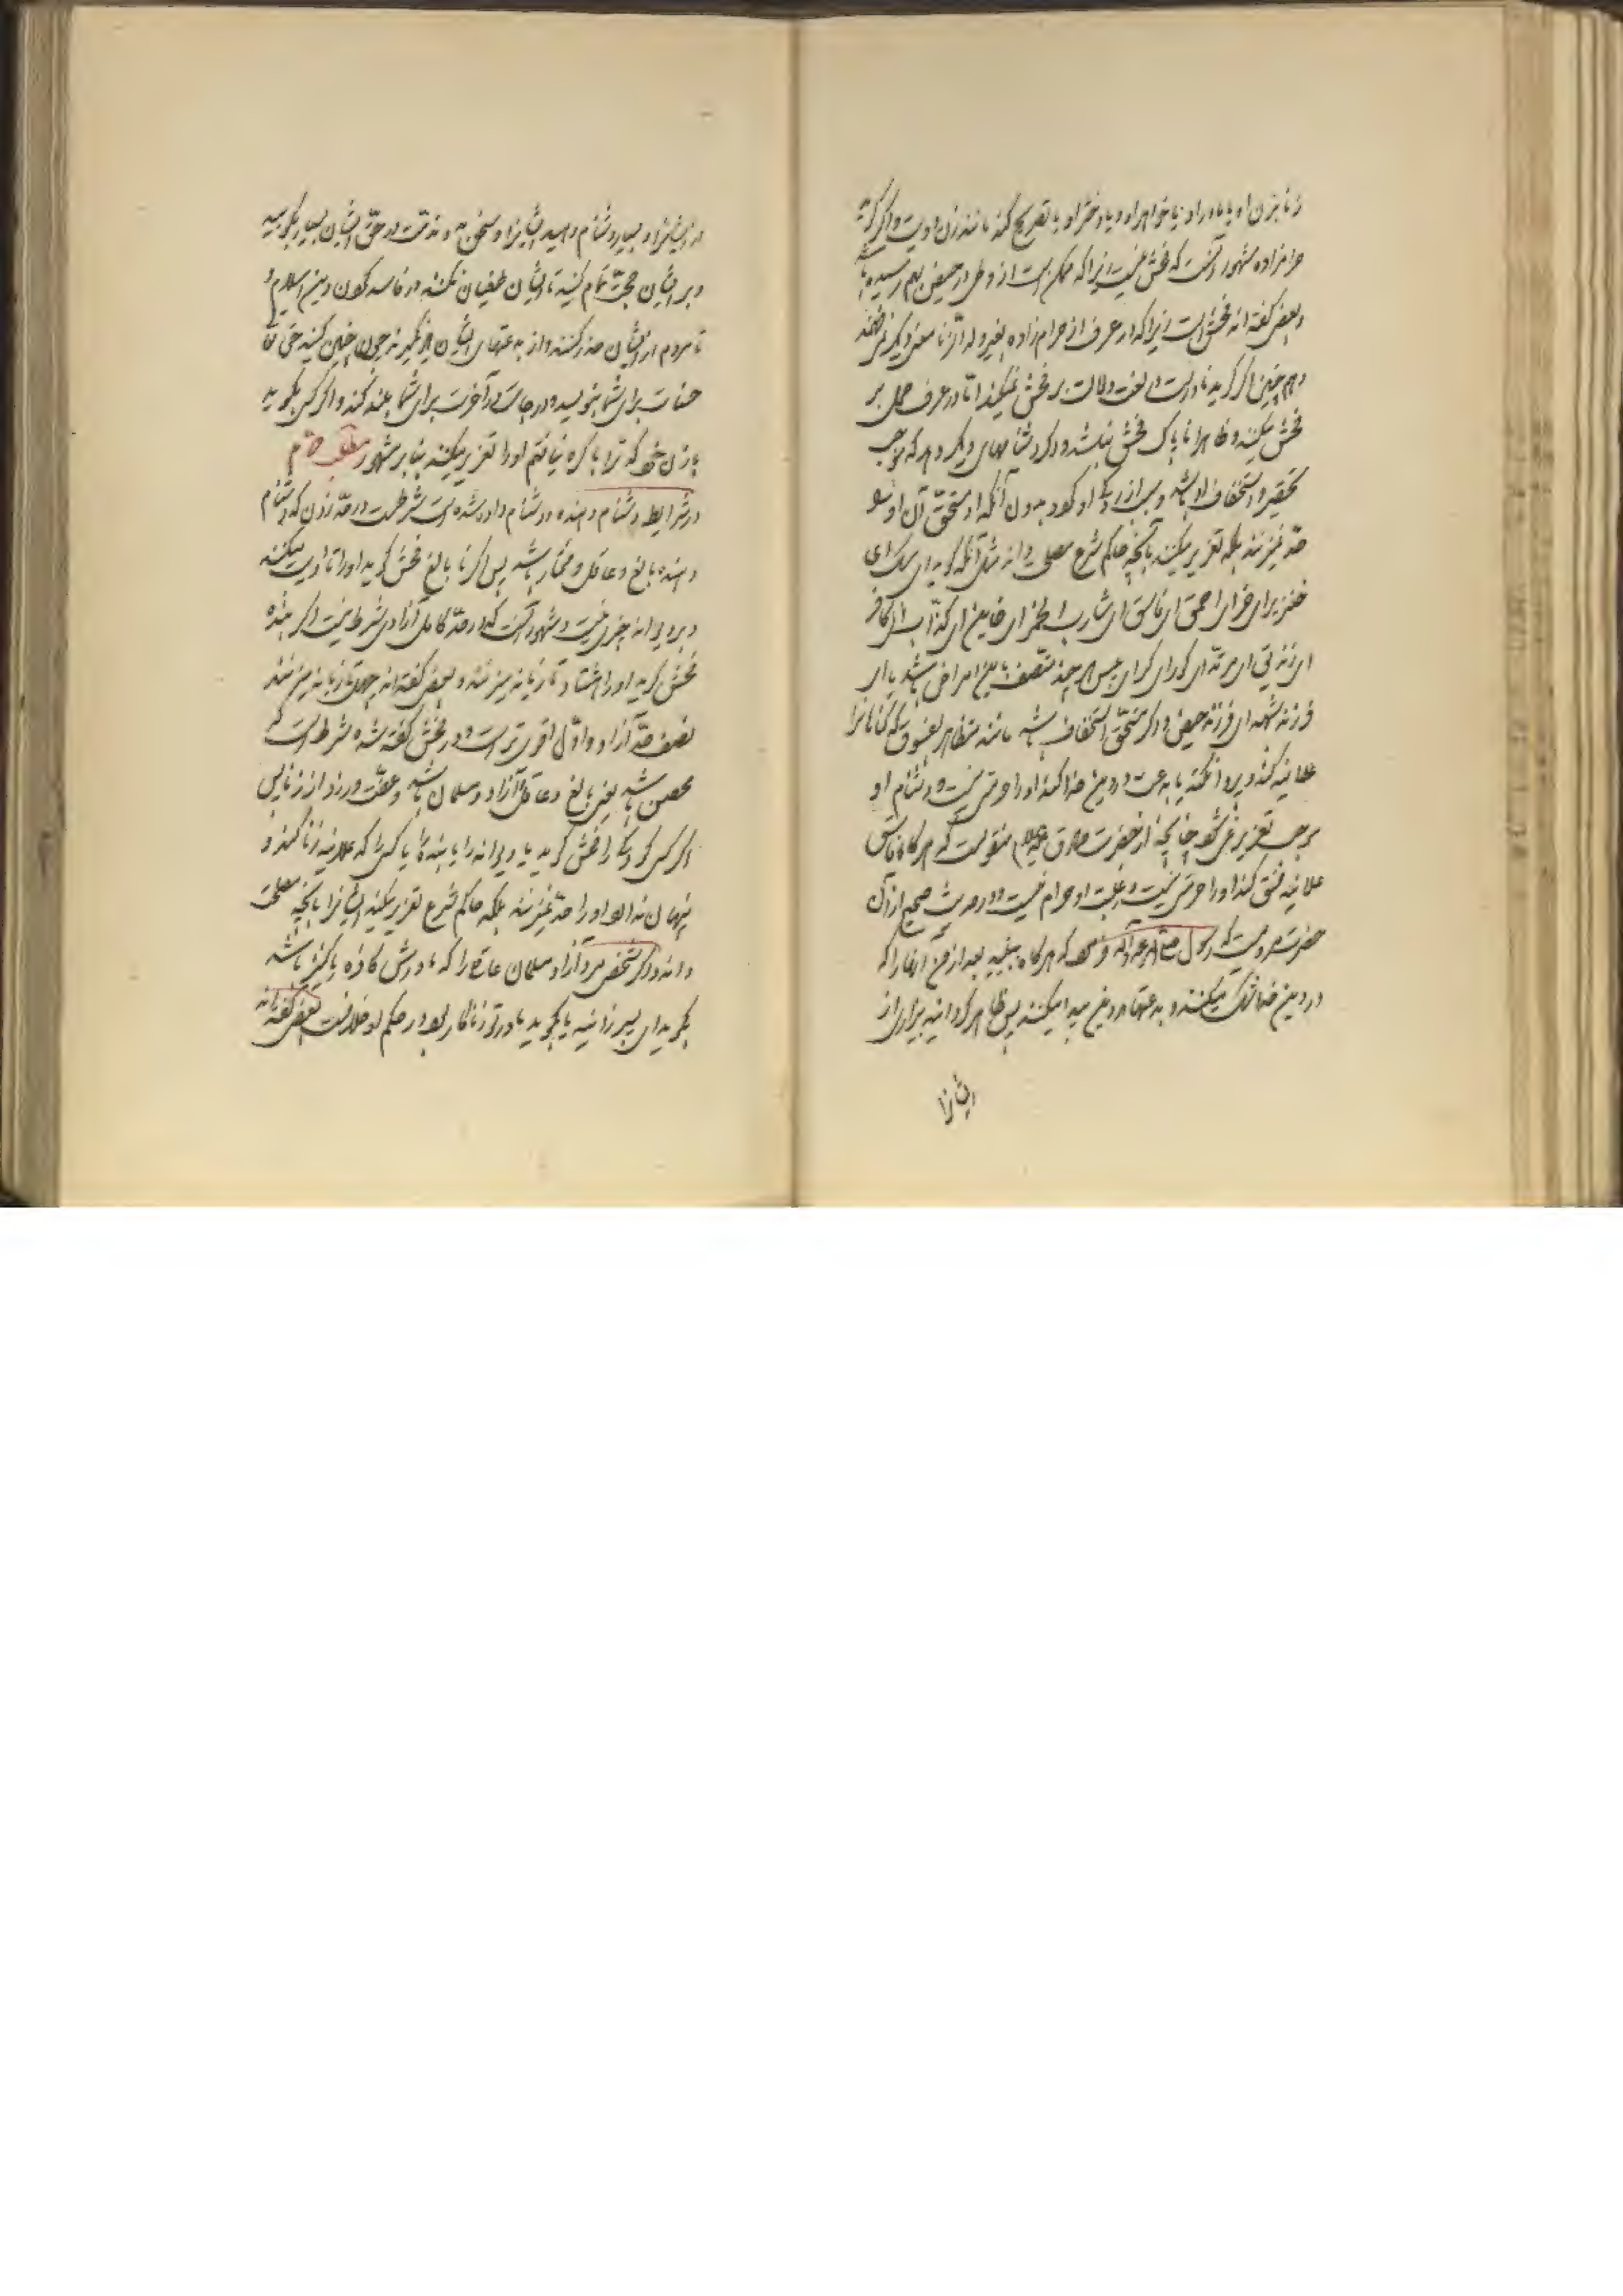 زنا بزن او یا مادر او یا خواهر او و یا دختر او یا تصریح کند مانند زن او است و اگر گوید
حرامزاده مشهور آنست که فحش نیست زیرا که ممکن است از وطی در حیض بهم رسیده باشد
و بعضی گفته اند فحش است زیرا که در عرف از حرام زاده بغیر ولد الزنا معنی دیگر نمی فهمند
و هم چنین اگر گوید نادرست در لغت دلالت بر فحش نمیکند اما در عرف حمل بر
فحش میکنند و ظاهرا ناپاک فحش نباشد و اگر دشنامهای دیگر دهد که موجب
تحقیر و استخفاف او باشد و بی ازردگی او گردد بدون آنکه او مستحق آن او شود
حد نمیزنند بلکه تعزیر میکنند بآنچه حاکم شرع مصلحت داند مثل آنکه گوید ای سک ای
خنزیر ای خر ای احمق ای فاسق ای شارب الخمر ای خاین ای کذاب ای کافر
ای زندیق ای مرتد ای کور ای کر ای پیس هر چند متصف باین امراض باشد یا ای
فرزند شبهه ای فرزند حیض و اگر مستحق استخفاف باشد مانند متظاهر بفسوق که گناهانرا
علانیه کند و پروا نکند یا بدعت در دین خدا کند او را حرمتی نیست و دشنام او
موجب تعزیر نمی شود چنانچه از حضرت صادق علیه السلام منقولست که هر گاه فاسق
علانیه فسق کند او را حرمتی نیست و غیبت او حرام نیست و در حدیث صحیح از آن
حضرت مرویست که رسول صلی الله علیه و آله فرمود که هر گاه ببینید بعد از من آنها را که
در دین خدا شک میکنند و بدعتها در دین پیدا میکنند پس ظاهر گردانید بیزاری از
ایشانرا
از ایشانرا و بسیار دشنام دهید ایشانرا و سخن بد و مذمت در حق ایشان بسیار بگویید
و بر ایشان حجت تمام کنید تا ایشان طغیان نکنند در فاسد کردن دین اسلام و
تا مردم از ایشان حذر کنند و از بدعتهای ایشان یاد نگیرند چون چنین کنید حق تعالی
حسنات برای شما بنویسد و درجات در آخرت برای شما بلند کند و اگر کسی بگوید
بازن خود که ترا باکره نیافتم او را تعزیر میکنند بنا بر مشهور مطلب دوم
در شرایط دشنام دهنده و دشنام داده شده است شرطست در حد زدن که دشنام
دهنده بالغ و عاقل و مختار باشد پس اگر نا بالغ فحش گوید او را تادیب میکنند
و بر دیوانه چیزی نیست و مشهور آنست که در حد کامل آزادی شرط نیست اگر بنده
فحش گوید او را هشتاد تازیانه میزنند و بعضی گفته اند چهل تازیانه میزنند
نصف حد آزاد و اول اقوی تر است و در فحش گفته شده شرط است که
محصن باشد یعنی بالغ و عاقل و آزاد و مسلمان باشد و عفت ورزد از زنا پس
اگر کسی کودکی را فحش گوید یا دیوانه را یا بنده یا کسی را که علانیه زنا کند و
پنهان ندارد او را حد نمیزنند بلکه حاکم شرع تعزیر میکند ایشانرا بآنچه مصلحت
داند و اگر شخص مرد آزاد مسلمان عاقلی را که مادرش کافره یا کنیز باشد
بگوید ای پسر زانیه یا بگوید مادر تو زناکار بود در حکم او خلافست بعضی گفته اند